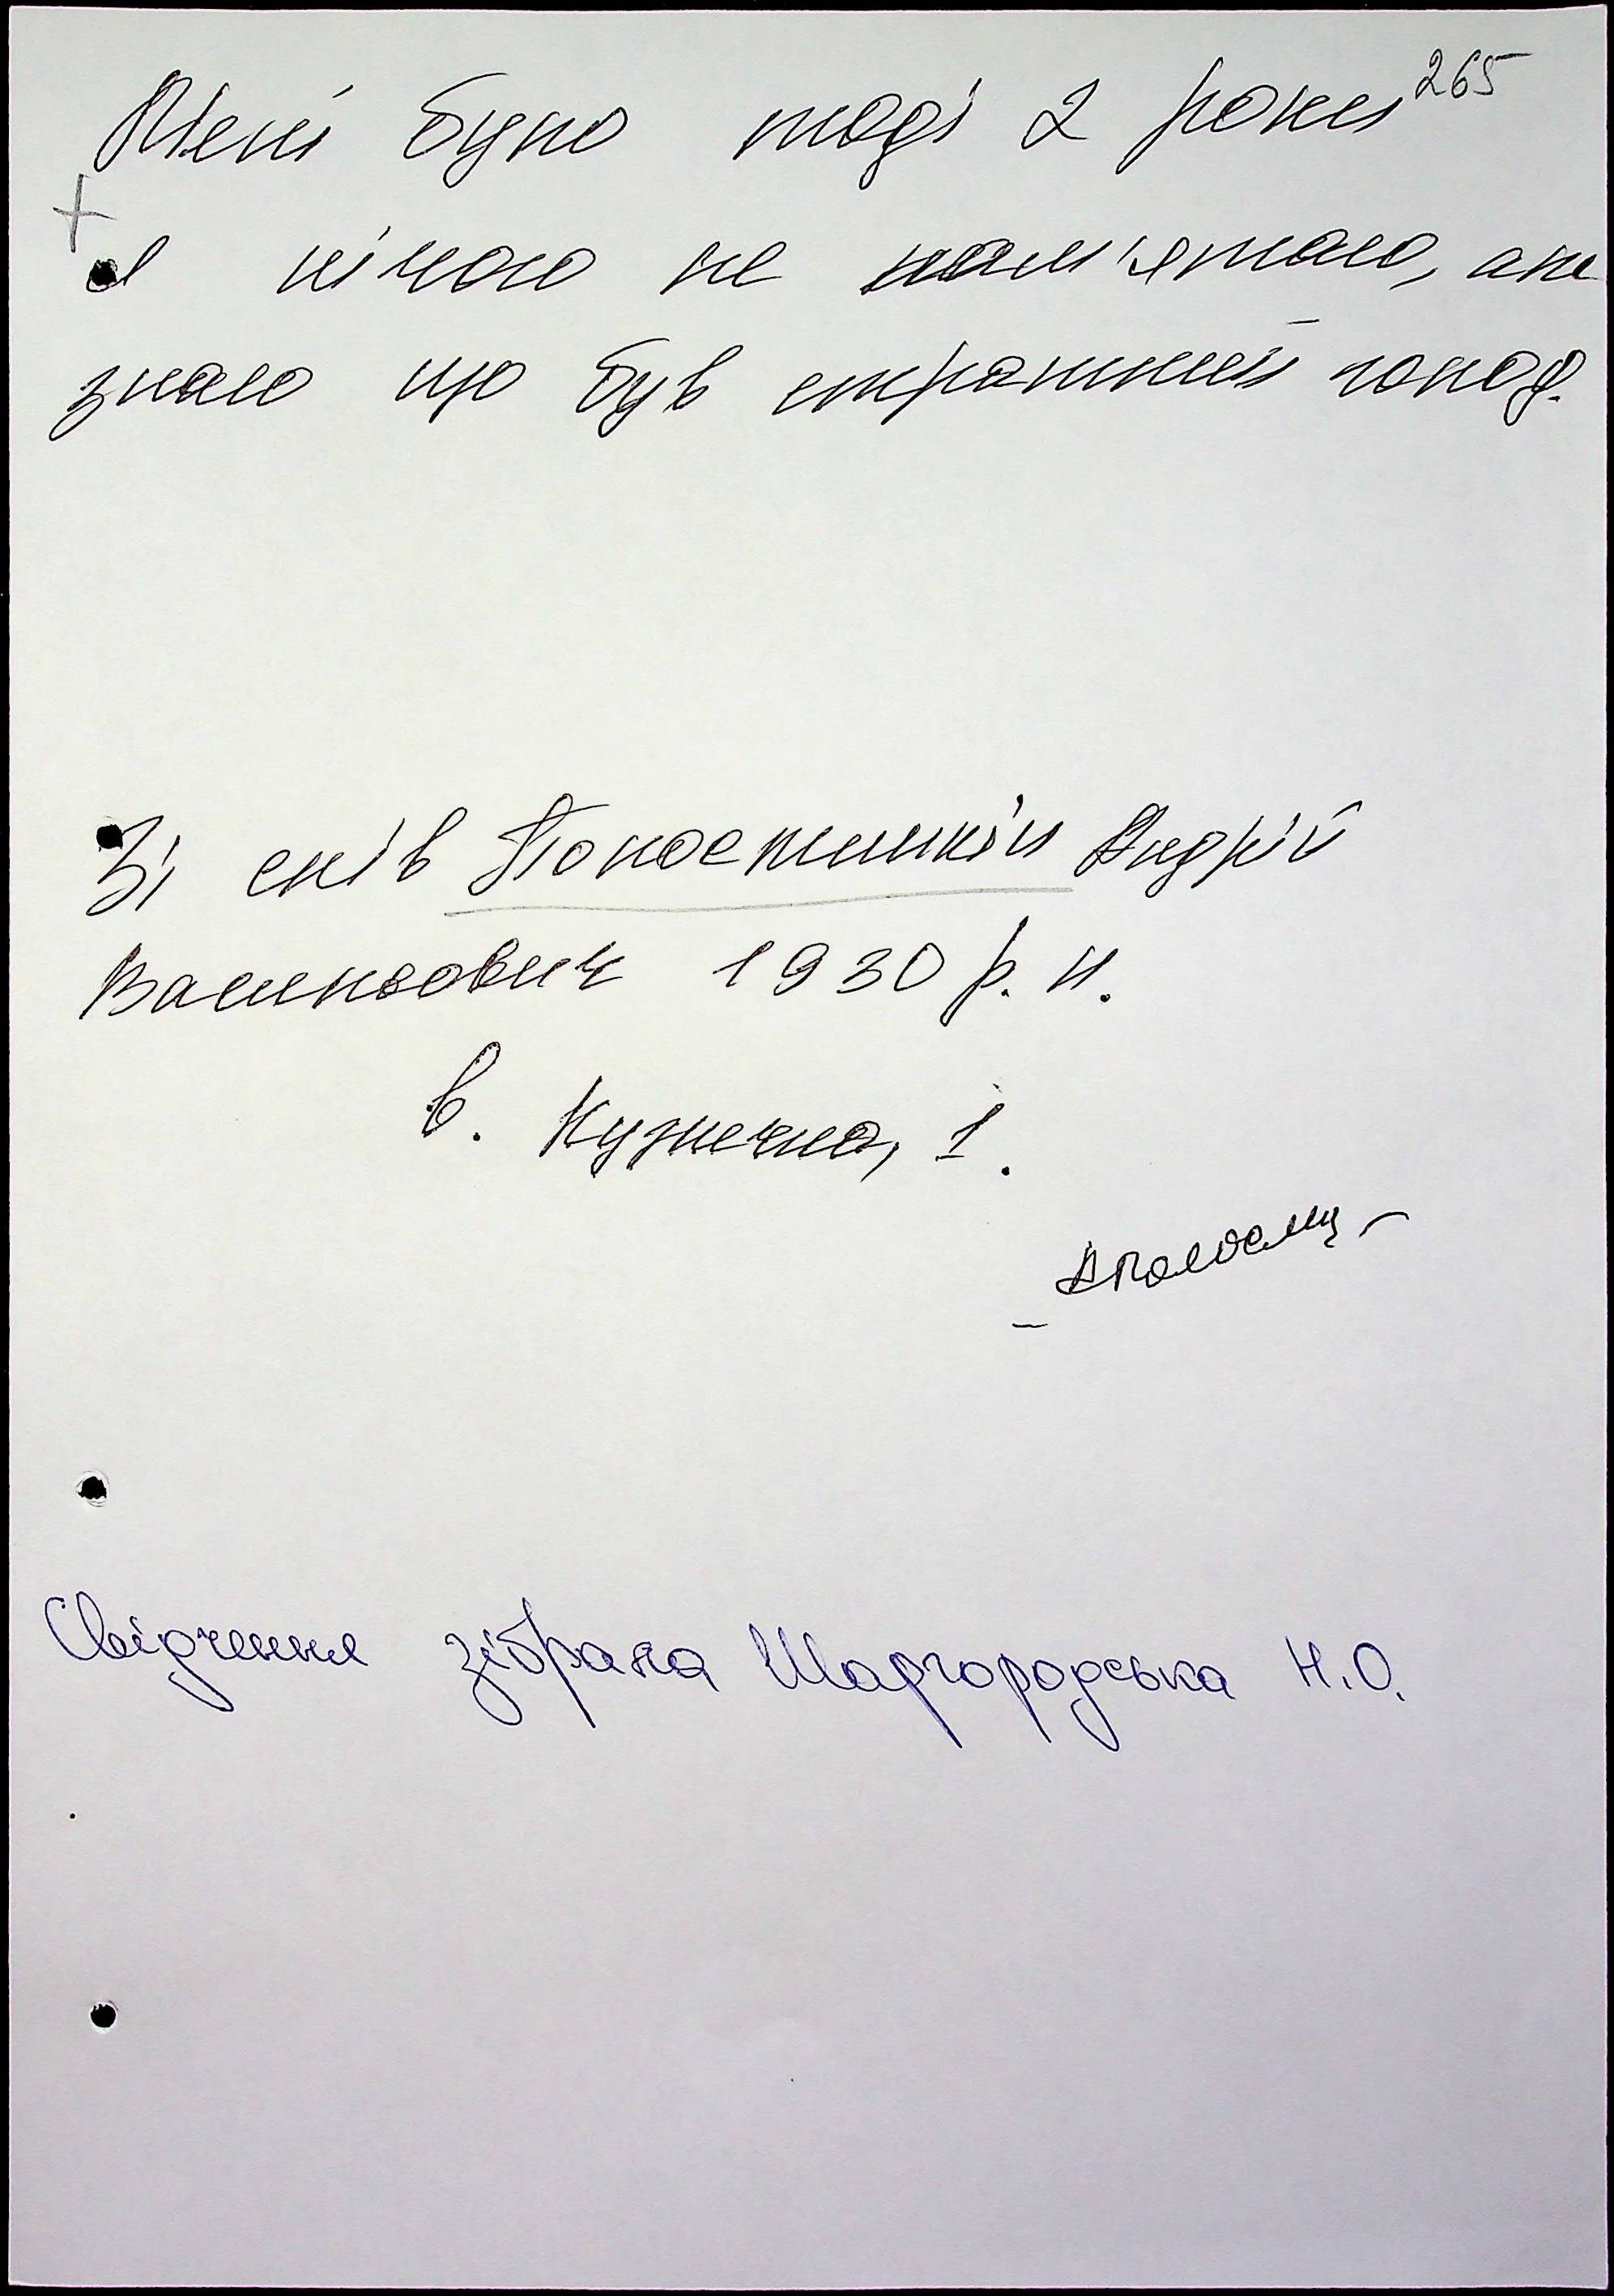 265
Мені було тоді 2 роки
я нічого не пам'ятаю, але
знаю що був страшний голод.
Зі слів Андрій
Васильович 1930 р. н.
в. Кузнечна, 1.
Свідчення зібрала Шаргородська Н.О.